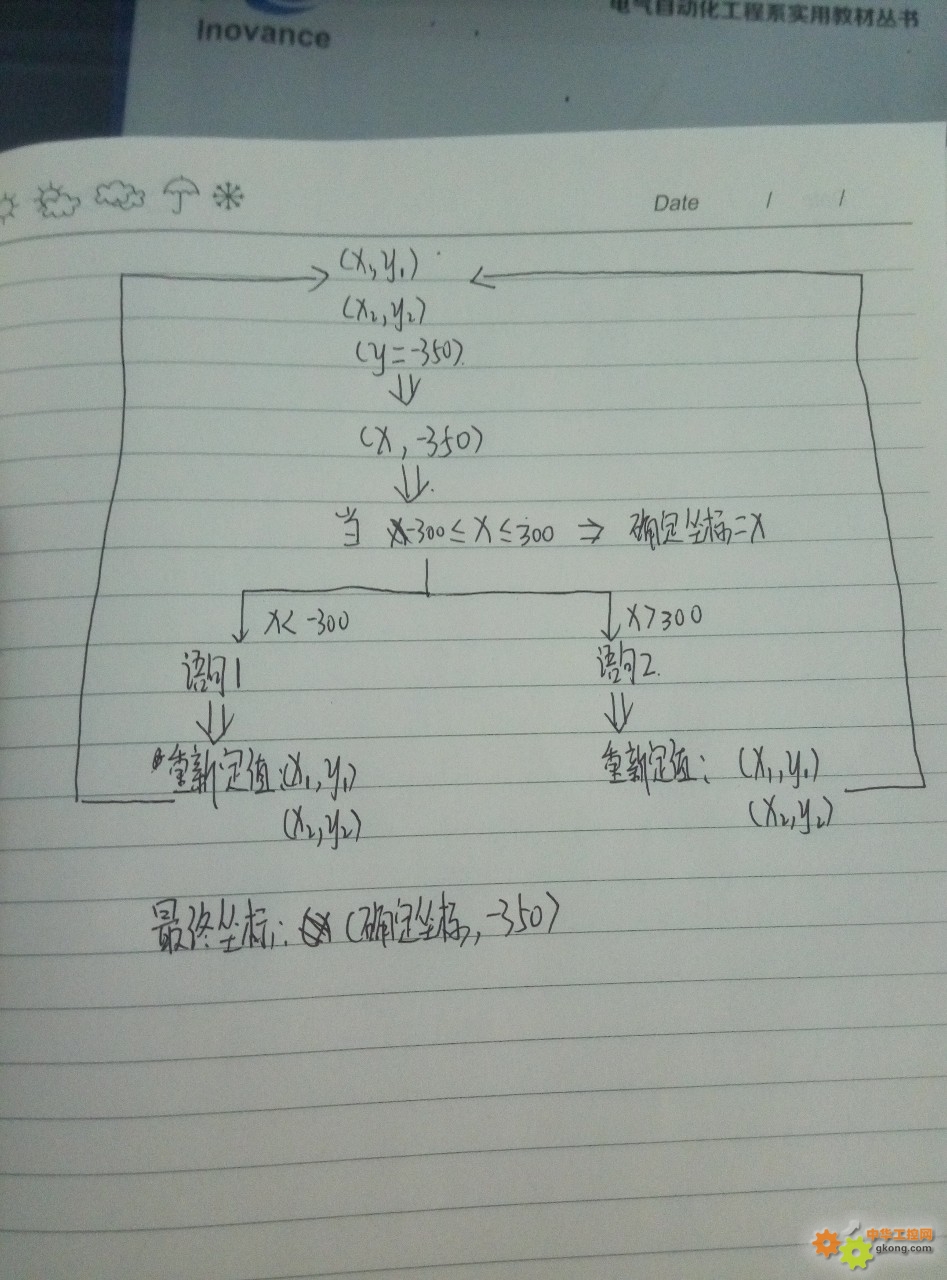 电气自动化工程系实用教材丛书
Inovance
Date / /
(x₁,y₁)
(x₂,y₂)
(y=-350)
⇓
(x,-350)
⇓
当 -300≤x≤300 ⇒ 确定坐标=x
x<-300
x>300
语句1
语句2
⇓
⇓
重新定值:(x₁,y₁)
重新定值: (x₁,y₁)
(x₂,y₂)
(x₂,y₂)
最终坐标: (确定坐标,-350)
中华工控网
gkong.com